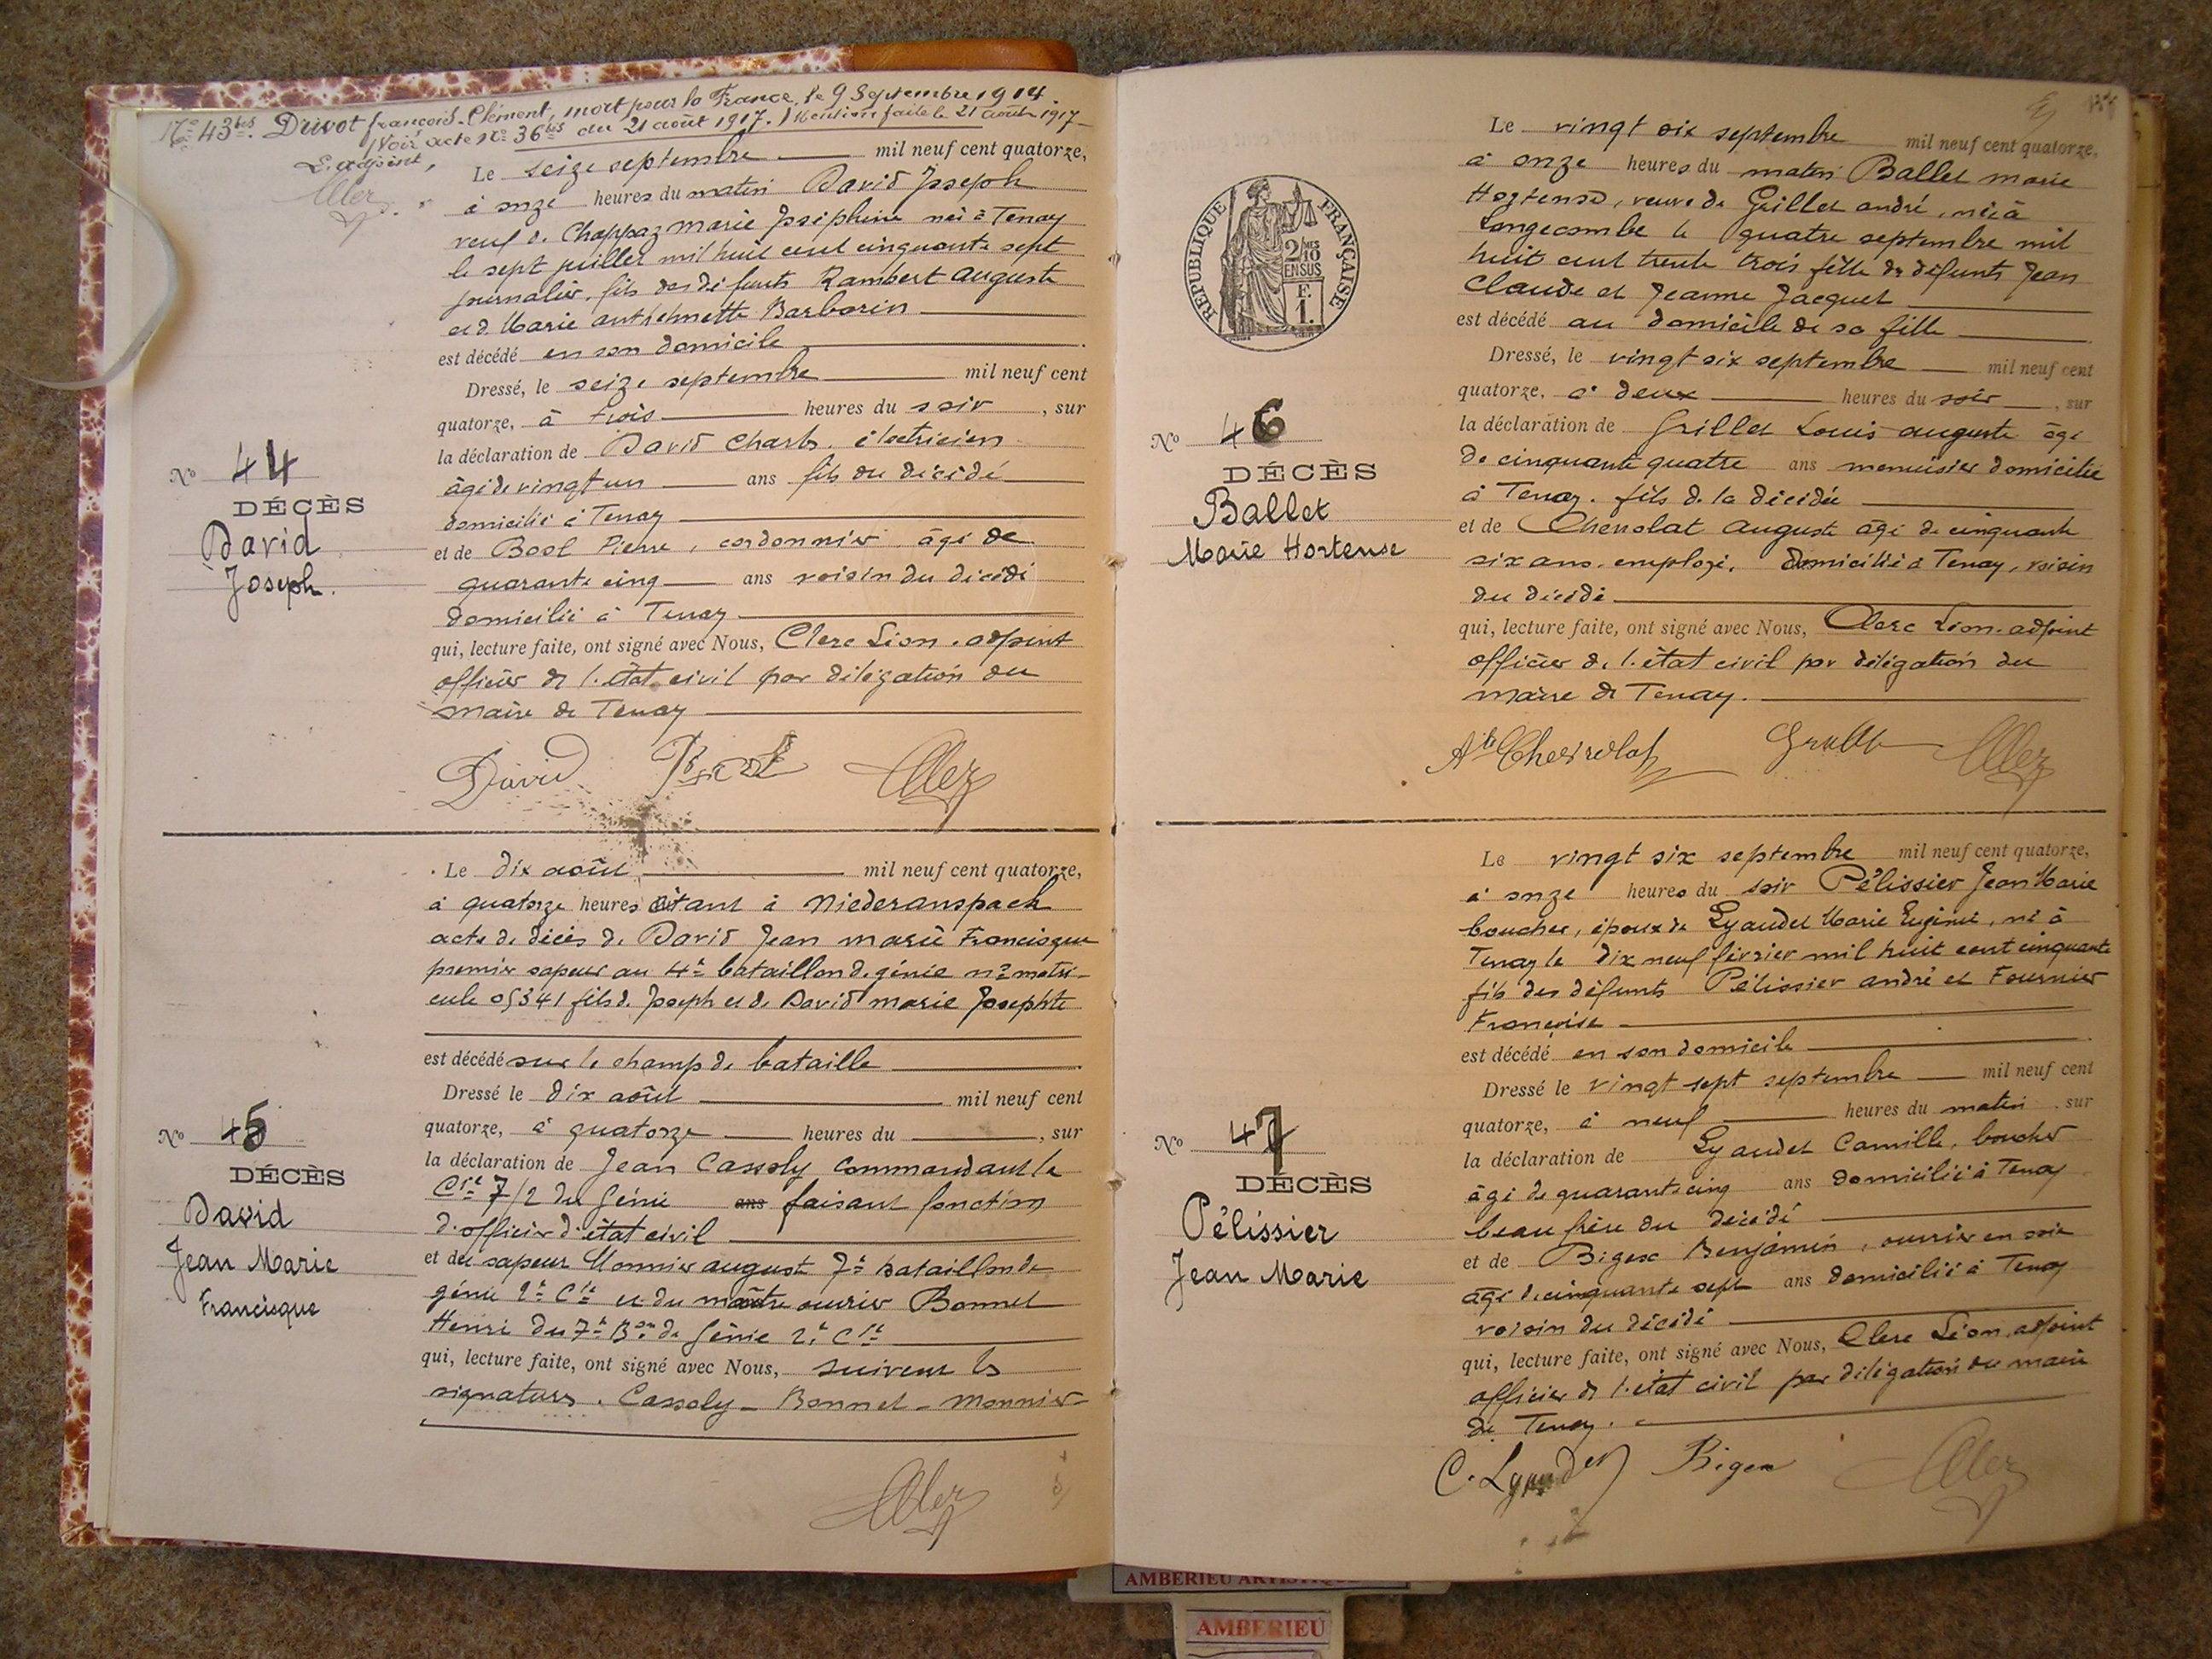 No 43 bis. Drivot françois-Clément, mort pour la France, le 9 Septembre 1914.
(Voir acte no 36 bis du 21 août 1917. Mention faite le 21 août 1917
L'adjoint,
Le seize septembre mil neuf cent quatorze,
à onze heures du matin David Joseph
veuf de Chappaz marie Joséphine né à Tenay
le sept juillet mil huit cent cinquante sept
journalier, fils des défunts Rambert auguste
et de Marie anthelmette Barbarin
est décédé en son domicile
Dressé, le seize septembre mil neuf cent
quatorze, à trois heures du soir, sur
la déclaration de David Charles, électricien
âgé de vingt un ans fils du décédé
domicilié à Tenay
et de Bost Pierre, cordonnier âgé de
quarante cinq ans voisin du décédé
domicilié à Tenay
qui, lecture faite, ont signé avec Nous, Clerc Léon. adjoint
officier de l'état civil par délégation du
maire de Tenay
No 44
DÉCÈS
David
Joseph.
David Bost
Le dix août mil neuf cent quatorze,
à quatorze heures étant à Niederanspach
acte de décès de David Jean marie Francisque
premier sapeur au 4e bataillon de génie no matri-
cule 05341 fils de Joseph et de David marie Josephte
est décédé sur le champ de bataille
Dressé le dix août mil neuf cent
quatorze, à quatorze heures du , sur
la déclaration de Jean Cassoly Commandant la
Cie 7/2 du Génie ans faisant fonction
d'officier d'état civil
et du sapeur Monnier august 7e bataillon de
génie 2e Cie et du maître ouvrier Bonnet
Henri du 7e Bon de Génie 2e Cie
qui, lecture faite, ont signé avec Nous, suivent les
signatures. Cassoly - Bonnet - Monnier
No 45
DÉCÈS
David
Jean Marie
Francisque
Le vingt six septembre mil neuf cent quatorze,
à onze heures du matin Ballet marie
Hortense, veuve de Grillet andré, née à
Longecombe le quatre septembre mil
huit cent trente trois fille de défunts Jean
Claude et Jeanne Jacquet
est décédé au domicile de sa fille
Dressé, le vingt six septembre mil neuf cent
quatorze, à deux heures du soir, sur
la déclaration de Grillet Louis auguste âgé
de cinquante quatre ans menuisier domicilié
à Tenay. fils de la décédée
et de Chevrolat auguste âgé de cinquante
six ans. employé. domicilié à Tenay, voisin
du décédé
qui, lecture faite, ont signé avec Nous, Clerc Léon. adjoint
officier de l'état civil par délégation du
maire de Tenay.
RÉPUBLIQUE FRANÇAISE
2/10MES
EN SUS
F.
1.
No 46
DÉCÈS
Ballet
Marie Hortense
Ate Chevrolat
Le vingt six septembre mil neuf cent quatorze,
à onze heures du soir Pélissier Jean Marie
boucher, époux de Lyaudet Marie Eugénie, né à
Tenay le dix neuf février mil huit cent cinquante
fils des défunts Pélissier andré et Fournier
Françoise
est décédé en son domicile
Dressé le vingt sept septembre mil neuf cent
quatorze, à neuf heures du matin, sur
la déclaration de Lyaudet Camille, boucher
âgé de quarante cinq ans domicilié à Tenay
beau frère du décédé
et de Bigex Benjamin, ouvrier en soie
âgé de cinquante sept ans domicilié à Tenay
voisin du décédé
qui, lecture faite, ont signé avec Nous, Clerc Léon. adjoint
officier de l'état civil par délégation du maire
de Tenay.
No 47
DÉCÈS
Pélissier
Jean Marie
C. Lyaudet Bigex
AMBERIEU